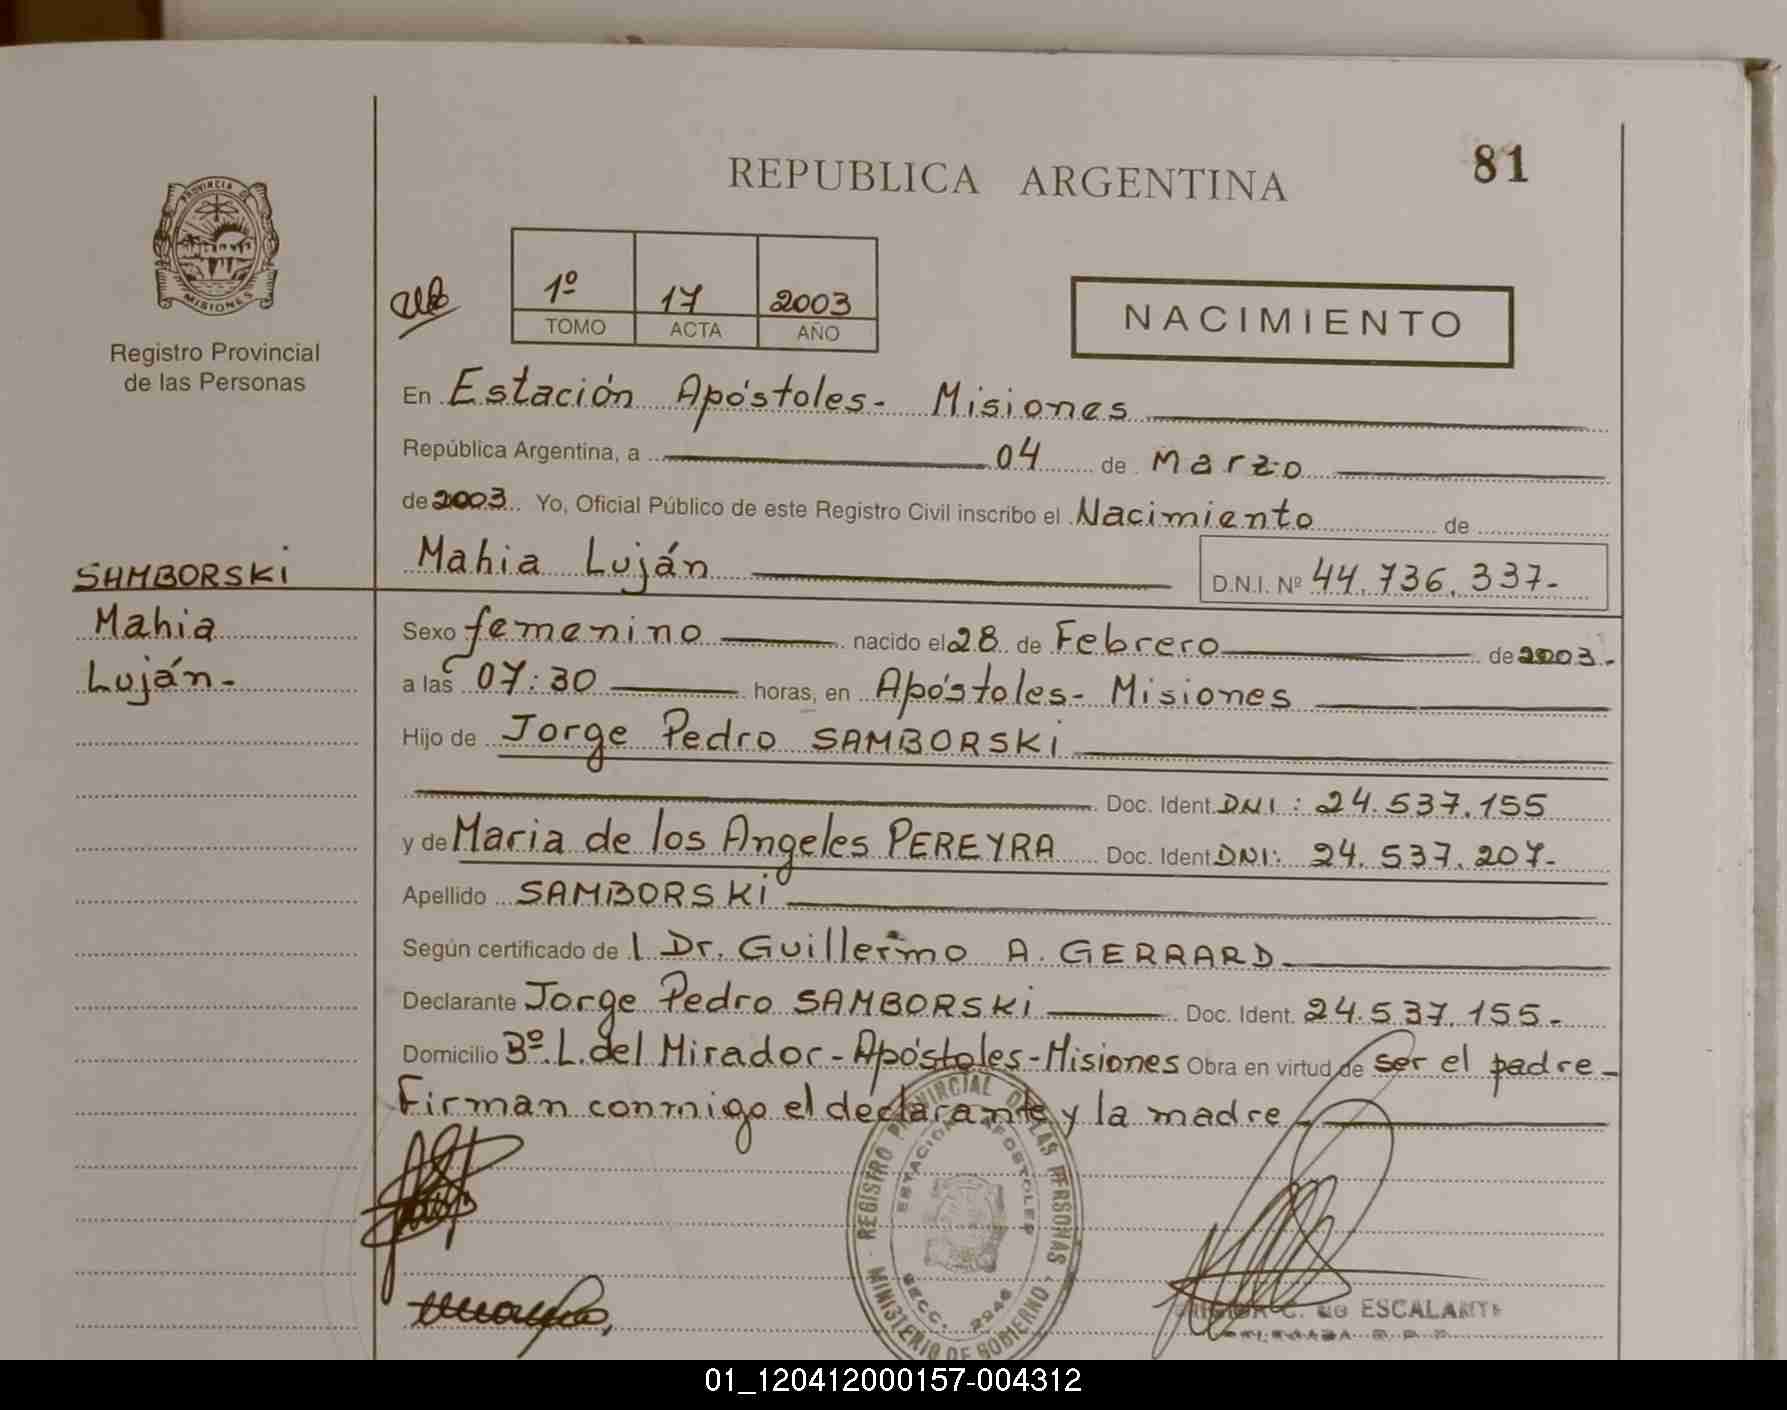 81
REPUBLICA ARGENTINA
PROVINCIA DE
MISIONES
Registro Provincial
de las Personas
1º 17 2003
TOMO ACTA AÑO
NACIMIENTO
En Estación Apóstoles- Misiones
República Argentina, a 04 de Marzo
de 2003 Yo, Oficial Público de este Registro Civil inscribo el Nacimiento de
Mahia Luján D.N.I. Nº 44.736.337-
SAMBORSKi
Mahia
Luján-
Sexo femenino nacido el 28 de Febrero de 2003-
a las 07:30 horas, en Apóstoles- Misiones
Hijo de Jorge Pedro SAMBORSKi
Doc. Ident. DNI: 24.537.155
y de Maria de los Angeles PEREYRA Doc. Ident DNI: 24.537.207-
Apellido SAMBORSKi
Según certificado de l Dr. Guillermo A. GERRARD
Declarante Jorge Pedro SAMBORSKi Doc. Ident. 24.537.155-
Domicilio Bº.L.del Mirador-Apóstoles-Misiones Obra en virtud de ser el padre-
Firman conmigo el declarante y la madre
REGISTRO PROVINCIAL DE LAS PERSONAS
ESTACION APOSTOLES
SECC. 2946
MINISTERIO DE GOBIERNO
C. de ESCALANTE
01_120412000157-004312